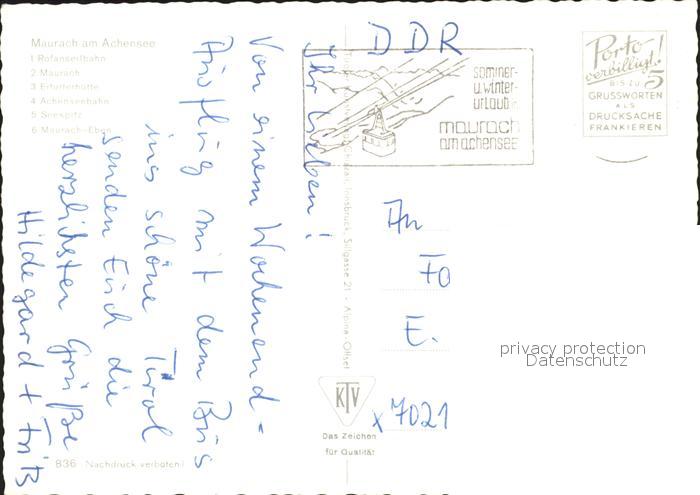 Maurach am Achensee
1 Rofanseilbahn
2 Maurach
3 Erfurterhütte
4 Achenseebahn
5 Seespitz
6 Maurach-Eben
Ihr Lieben!
Von einem Wochenend-
Ausflug mit dem Bus
ins schöne Tirol
senden Euch die
herzlichsten Grüße
Hildegard + Fritz
B36 Nachdruck verboten!
Innsbruck, Sillgasse 21 - Alpina-Offset
KTV
Das Zeichen
für Qualität
DDR
sommer-
u.winter-
urlaub
maurach
am achensee
Porto
verbilligt!
BIS ZU 5
GRUSSWORTEN
ALS
DRUCKSACHE
FRANKIEREN
An
Fo
E.
x 7021
privacy protection
Datenschutz